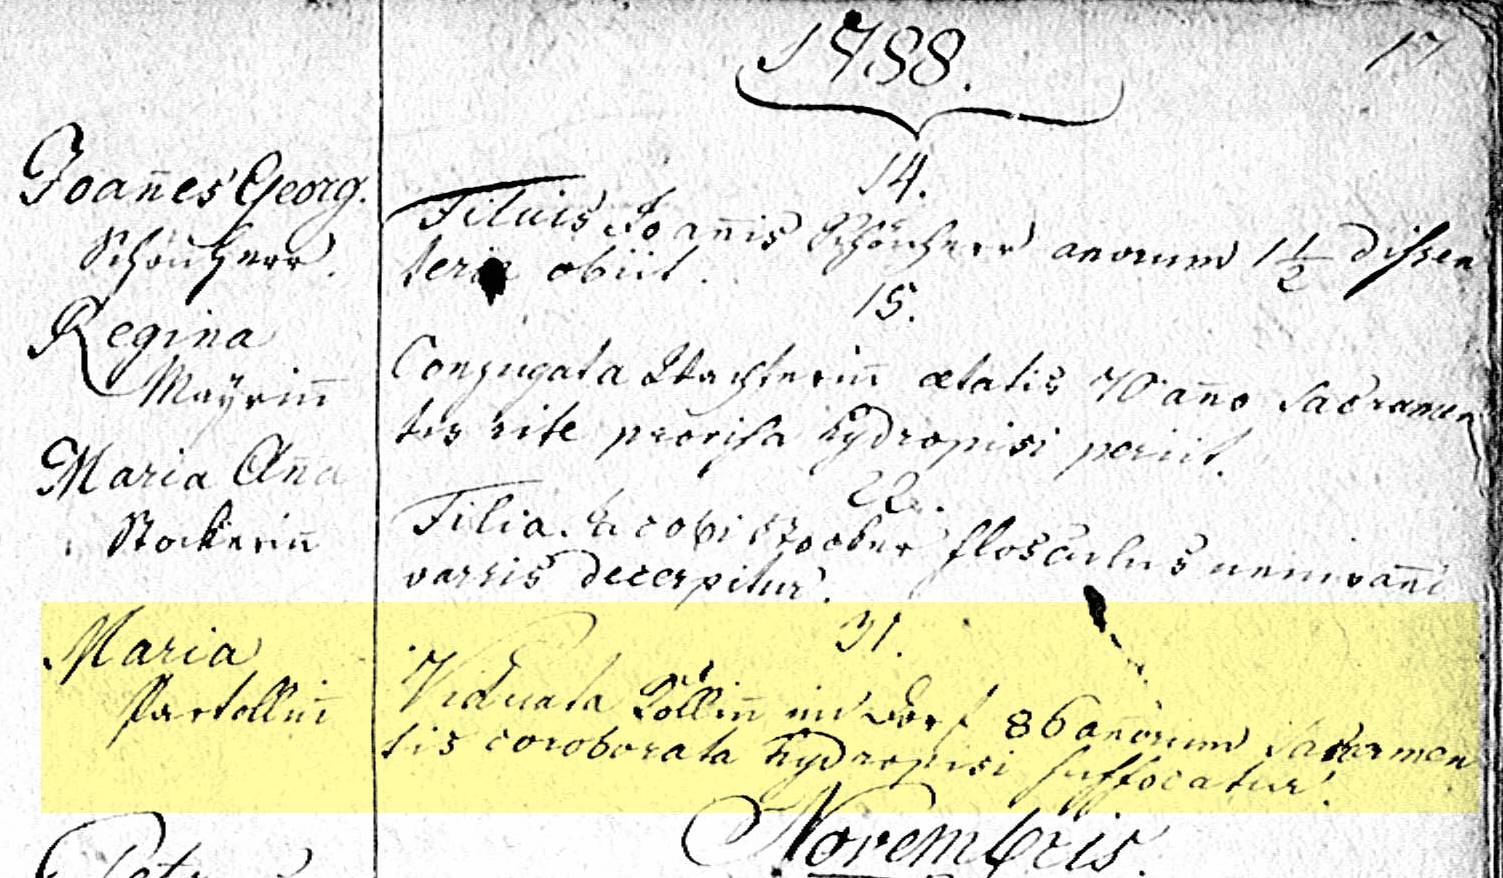 1788.
17
Joañes Georg.
Schönherr.
14.
Filuis Joañis Schönherr anorum 1 1/2 dissen
teria obiit.
Regina
Maÿrin̄
15.
Conjugata Wachterin̄ ætatis 70 año Sacramen
tis rite provisa hydropisi periit.
Maria Aña
Stockerin̄
22.
Filia Jacobi Stocker flosculus unius añi
varris decerpitur.
Maria
Partollin̄
31.
Viduata Döllin̄ im Dorf 86 añorum Sacramen
tis coroborata hydropisi suffocatur.
Novembris.
Petr